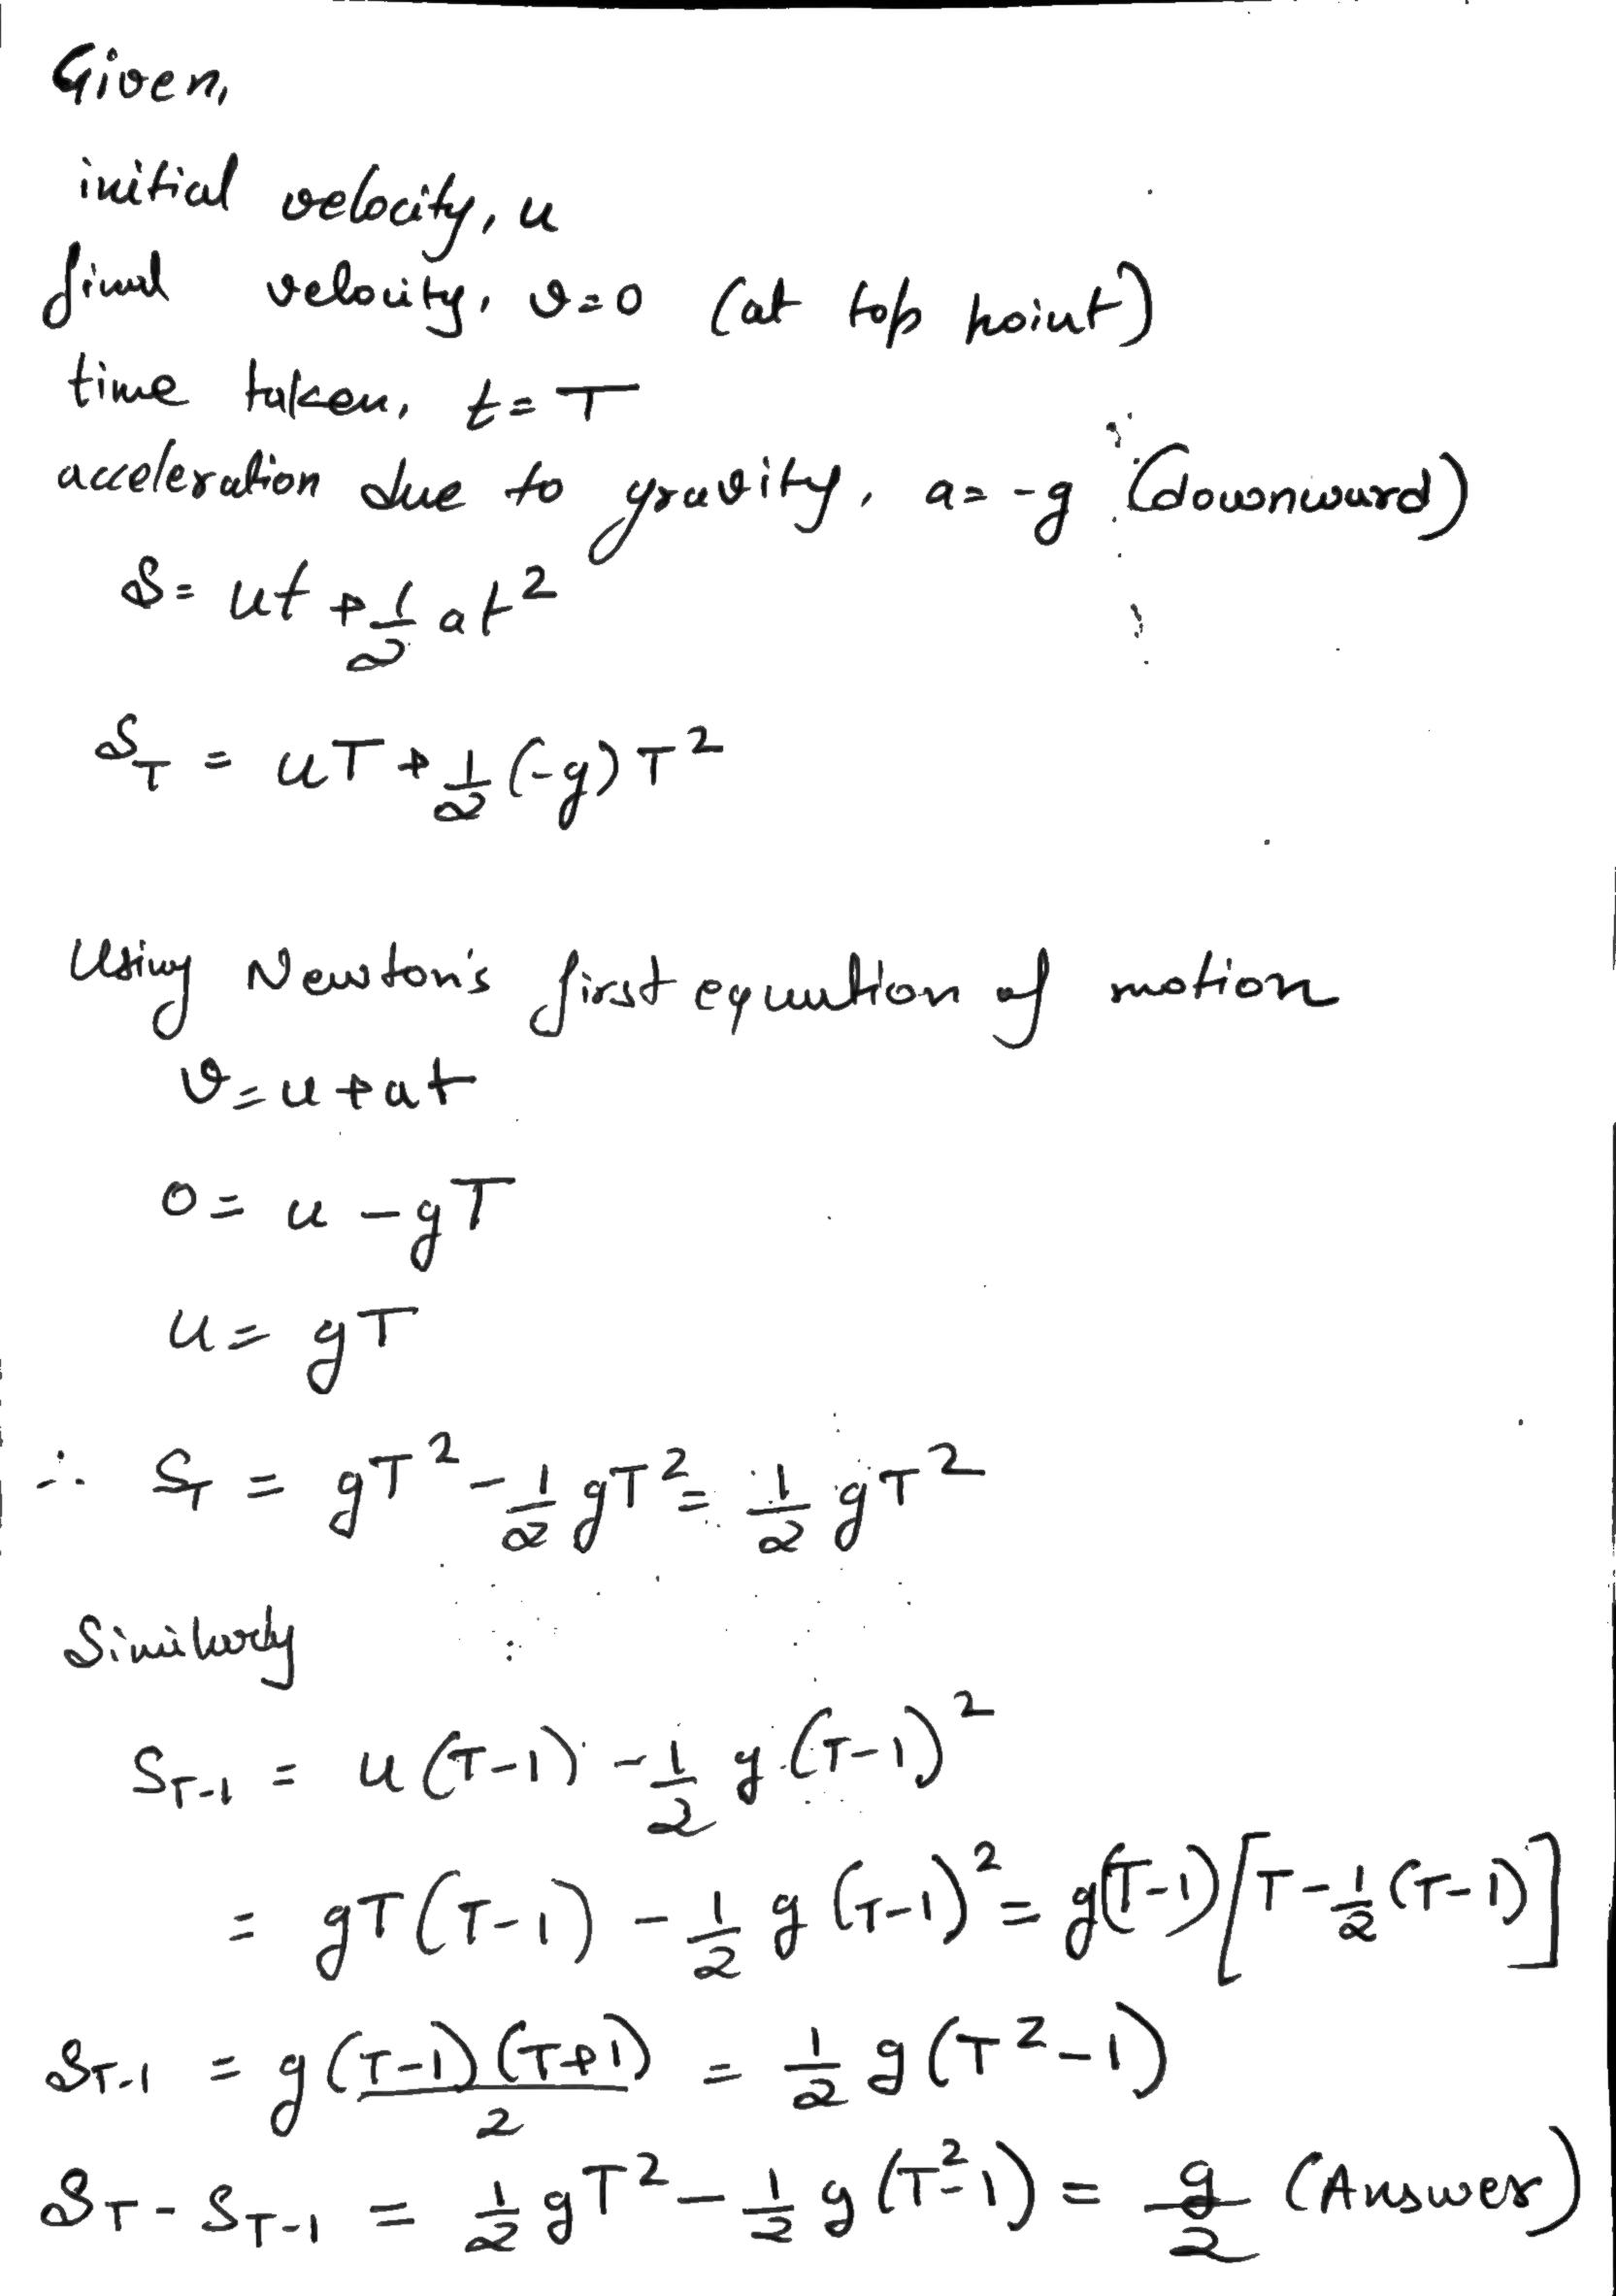 Given,
initial velocity, u
final velocity, v=0 (at top point)
time taken, t=T
acceleration due to gravity, a=-g (downward)
S= ut+½at²
S_T = uT+½(-g)T²
Using Newton's first equation of motion
v=u+at
0=u-gT
u=gT
∴ S_T = gT²-½gT²=½gT²
Similarly
S_T-1 = u(T-1)-½g(T-1)²
= gT(T-1)-½g(T-1)²=g(T-1)[T-½(T-1)]
S_T-1 = g(T-1)(T+1)/2 = ½g(T²-1)
S_T-S_T-1 = ½gT²-½g(T²-1)= g/2 (Answer)